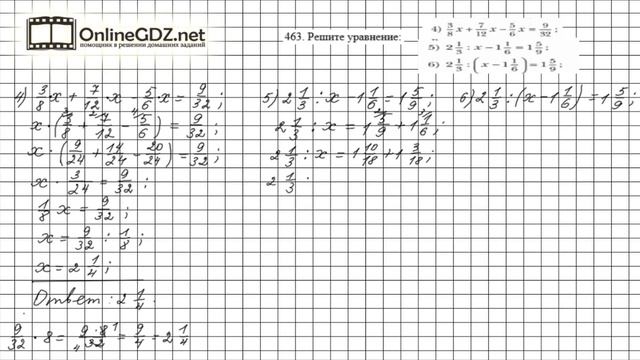 OnlineGDZ.net
помощник в решении домашних заданий
463. Решите уравнение:
4) 3/8 x + 7/12 x − 5/6 x = 9/32;
5) 2 1/3 : x − 1 1/6 = 1 5/9;
6) 2 1/3 : (x − 1 1/6) = 1 5/9;
4) 3/8 · x + 7/12 · x − 5/6 · x = 9/32;
x · (3/8 + 7/12 − 5/6) = 9/32;
x · (9/24 + 14/24 − 20/24) = 9/32;
x · 3/24 = 9/32;
1/8 x = 9/32;
x = 9/32 : 1/8;
x = 2 1/4;
Ответ: 2 1/4.
9/32 · 8 = 9·8/32 = 9/4 = 2 1/4
5) 2 1/3 : x − 1 1/6 = 1 5/9;
2 1/3 : x = 1 5/9 + 1 1/6;
2 1/3 : x = 1 10/18 + 1 3/18;
2 1/3 :
6) 2 1/3 : (x − 1 1/6) = 1 5/9;